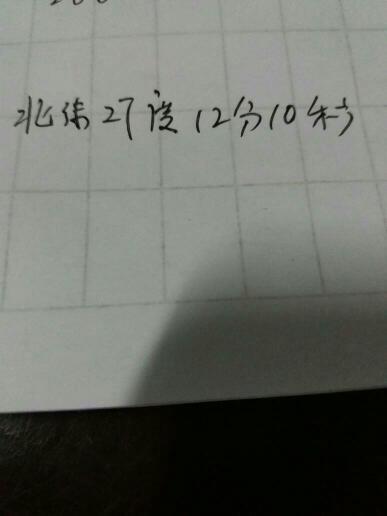 北纬27度12分10秒